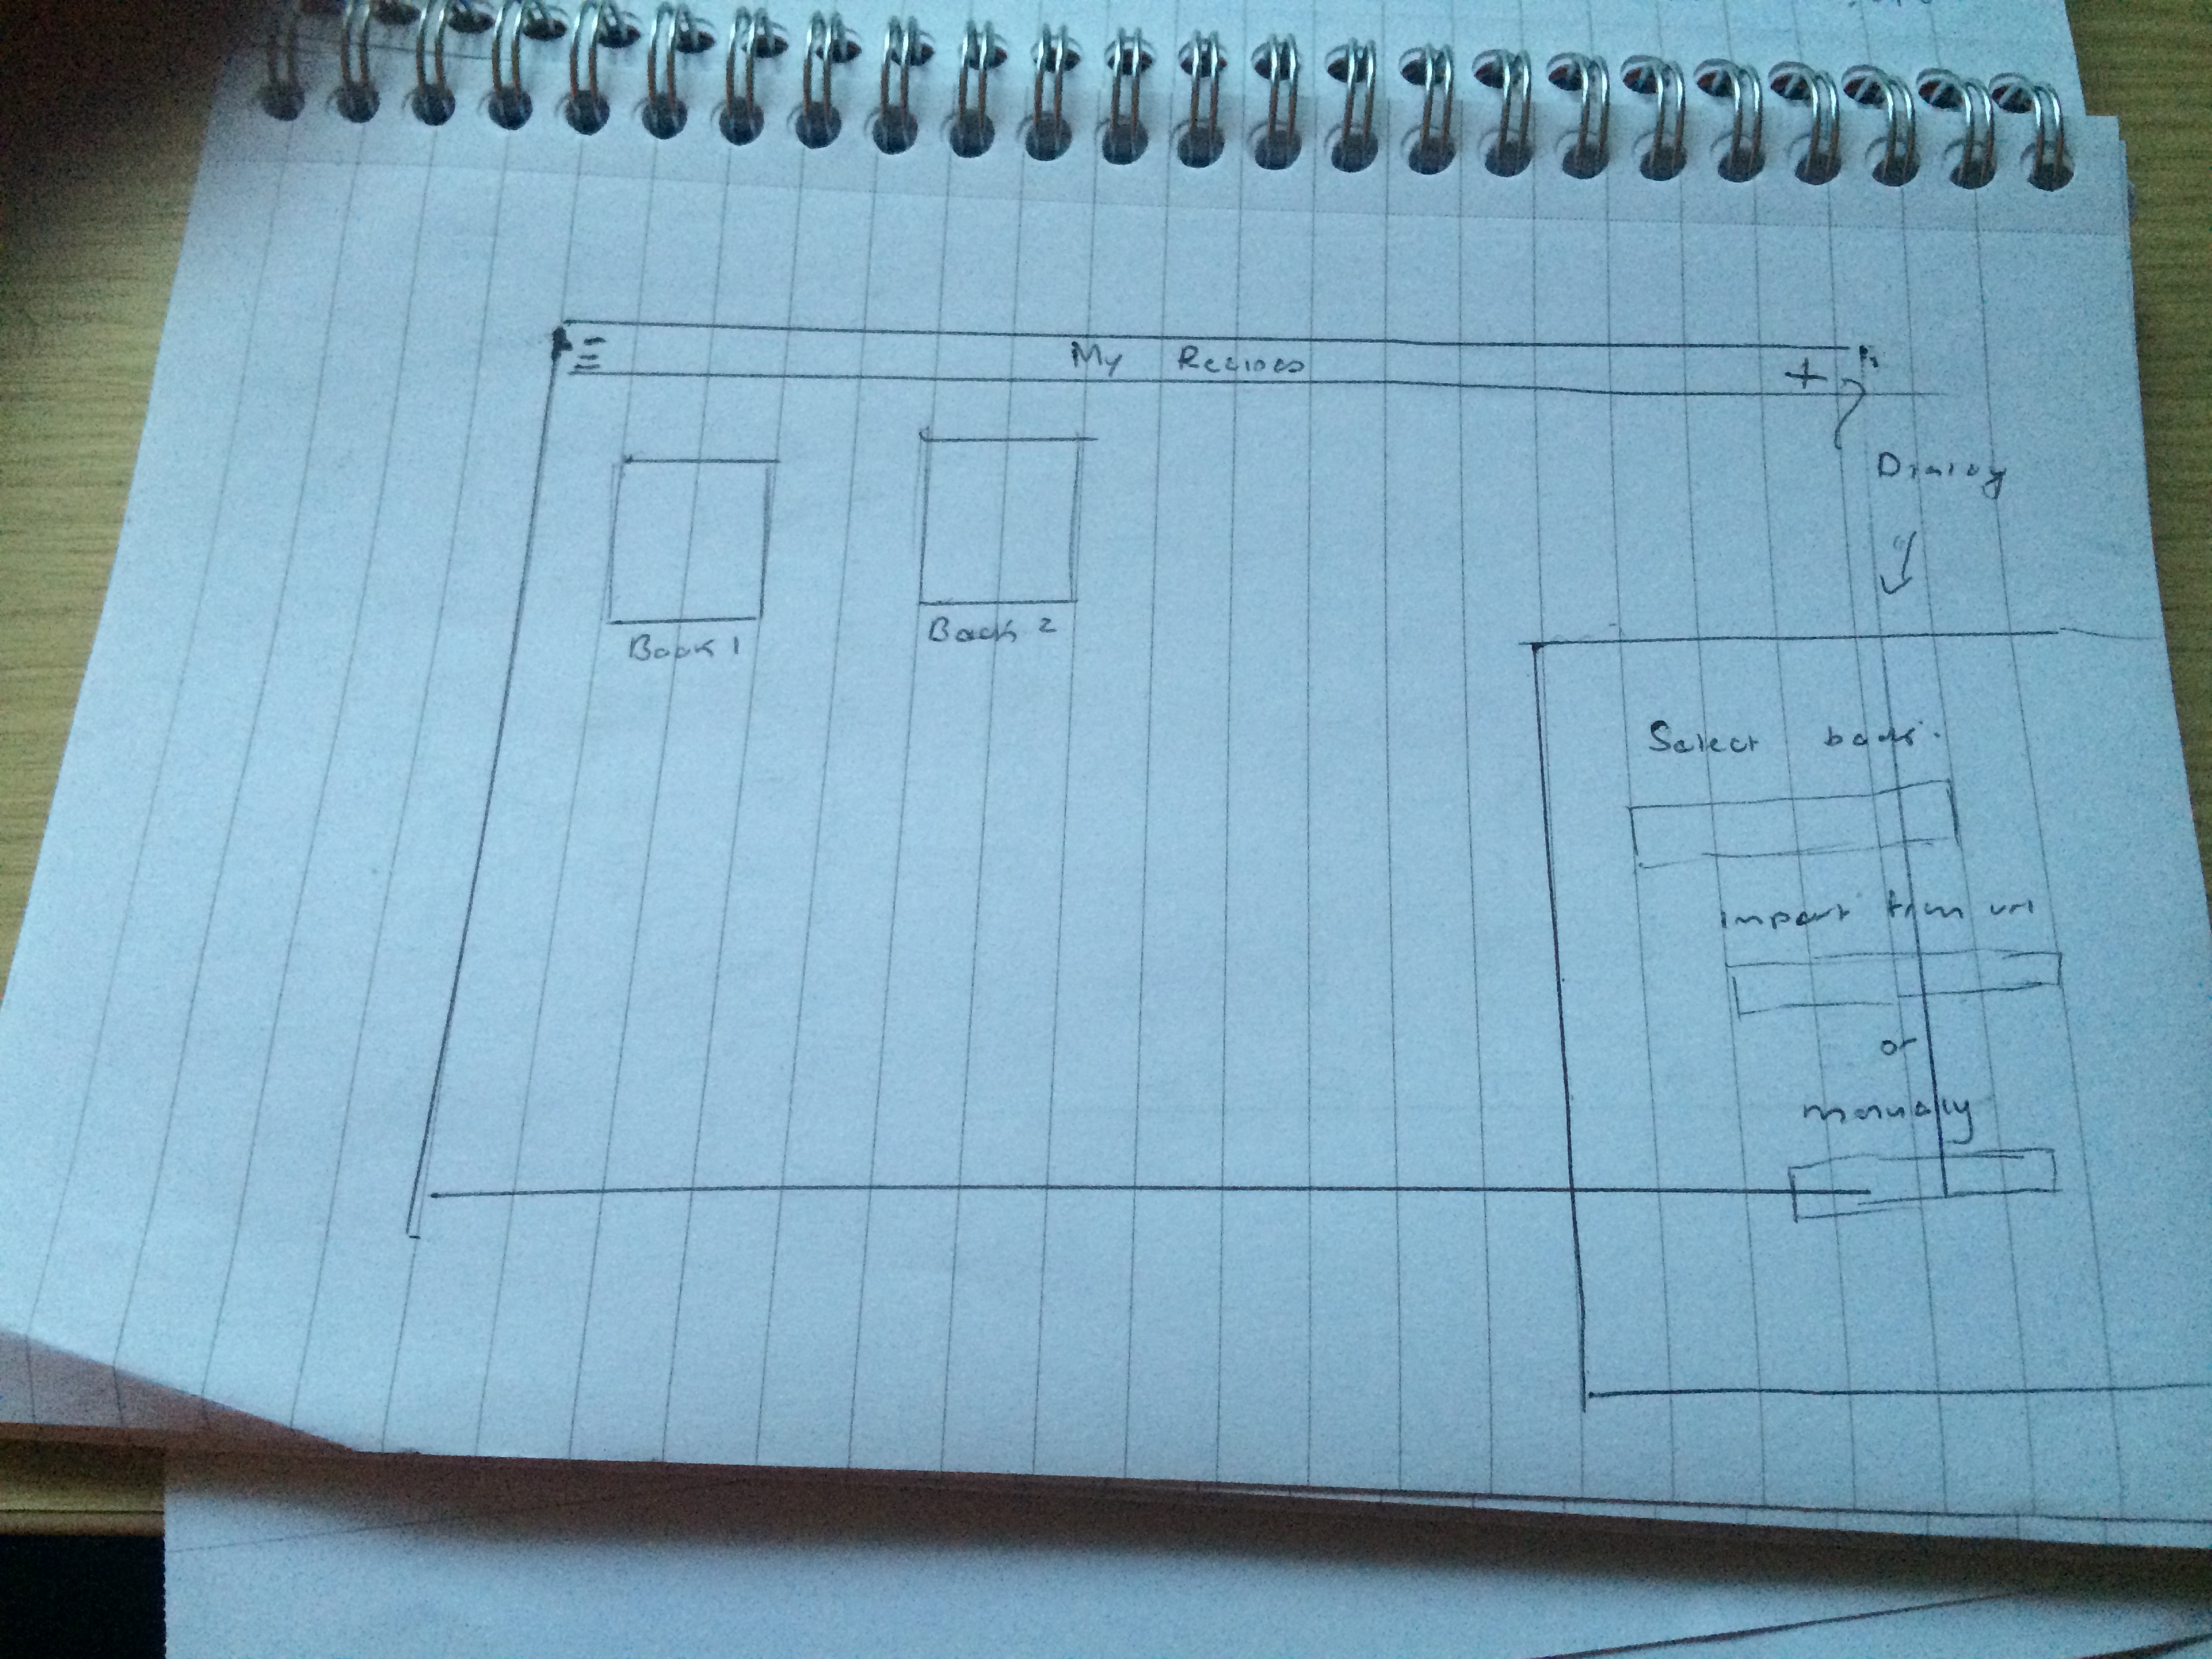 My Recipes +
Book 1
Book 2
Dialog
Select book:
import from url
or
manually